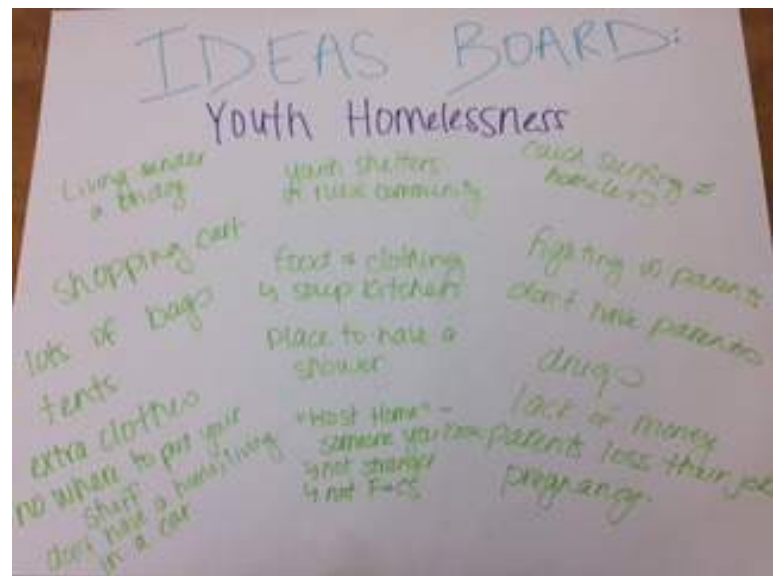 IDEAS BOARD:
Youth Homelessness
Living under
a bridge
shopping cart
lots of bags
tents
extra clothes
no where to put your
stuff
don't have a home, living
in a car
youth shelters
in community
food + clothing
↳ soup kitchen
place to have a
shower
"Host Home" -
someone you know
↳ not stranger
↳ not F+CS
couch surfing =
homeless
fighting w parents
don't have parents
drugs
lack of money
parents loss their job
pregnancy